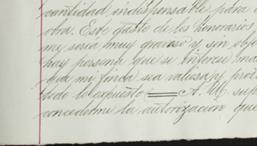 cantidad indispensable para
obra. Este gasto de los honorarios
me seria muy gravoso y sin obje
hay persona que se interese mas
mi finca sea valiosa y pro
lo expuesto A. M. sup
concederme la autorización que